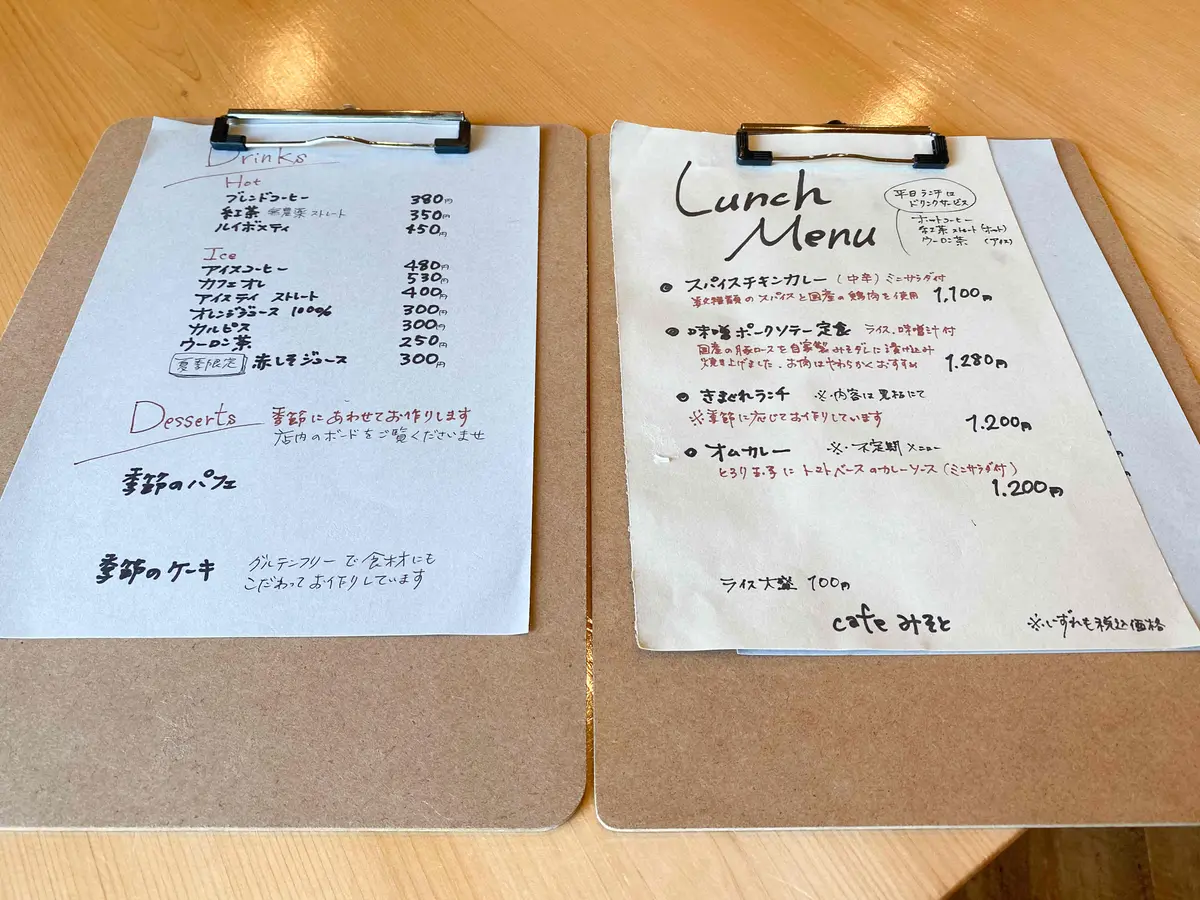 Drinks
Hot
ブレンドコーヒー 380円
紅茶 無農薬 ストレート 350円
ルイボスティ 450円
Ice
アイスコーヒー 480円
カフェオレ 530円
アイスティ ストレート 400円
オレンジジュース 100% 300円
カルピス 300円
ウーロン茶 250円
夏季限定 赤しそジュース 300円
Desserts 季節にあわせてお作りします
店内のボードをご覧くださいませ
季節のパフェ
季節のケーキ グルテンフリーで食材にも
こだわってお作りしています
Lunch
Menu
平日ランチは
ドリンクサービス
ホットコーヒー
紅茶 ストレート (ホット)
ウーロン茶 (アイス)
スパイスチキンカレー (中辛) ミニサラダ付
数種類のスパイスと国産の鶏肉を使用 1,100円
味噌ポークソテー定食 ライス、味噌汁付
国産の豚ロースを自家製みそダレに漬け込み
焼き上げました。お肉はやわらかくおすすめ 1.280円
きまぐれランチ ※内容は黒板にて
※季節に応じてお作りしています 1.200円
オムカレー ※不定期メニュー
とろり玉子にトマトベースのカレーソース (ミニサラダ付) 1.200円
ライス大盛 100円
cafe みそと
※いずれも税込価格